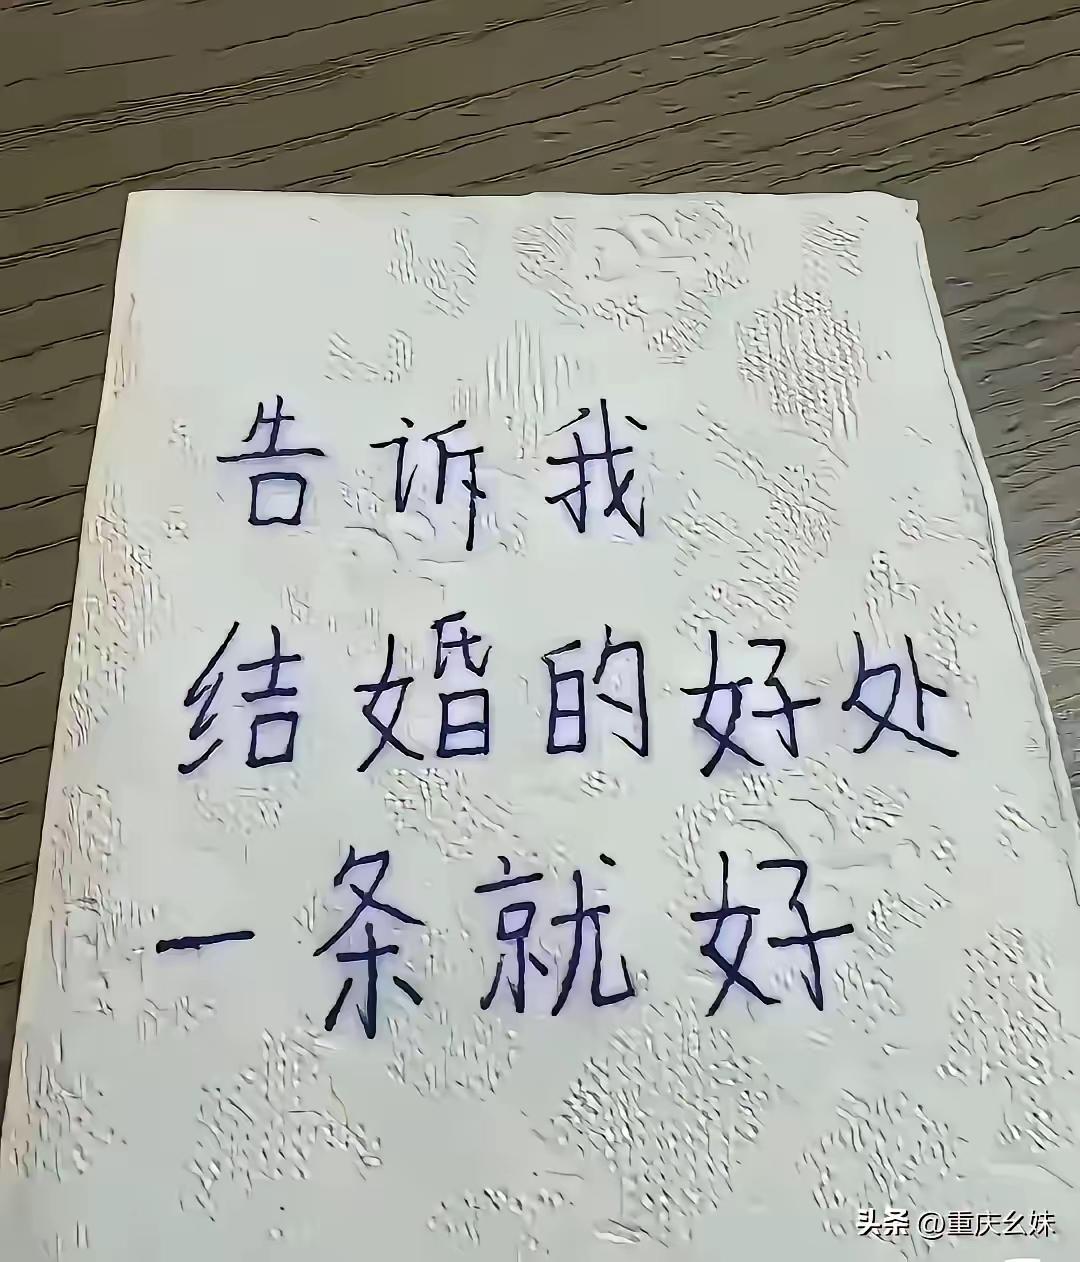 告诉我
结婚的好处
一条就好
头条 @重庆幺妹